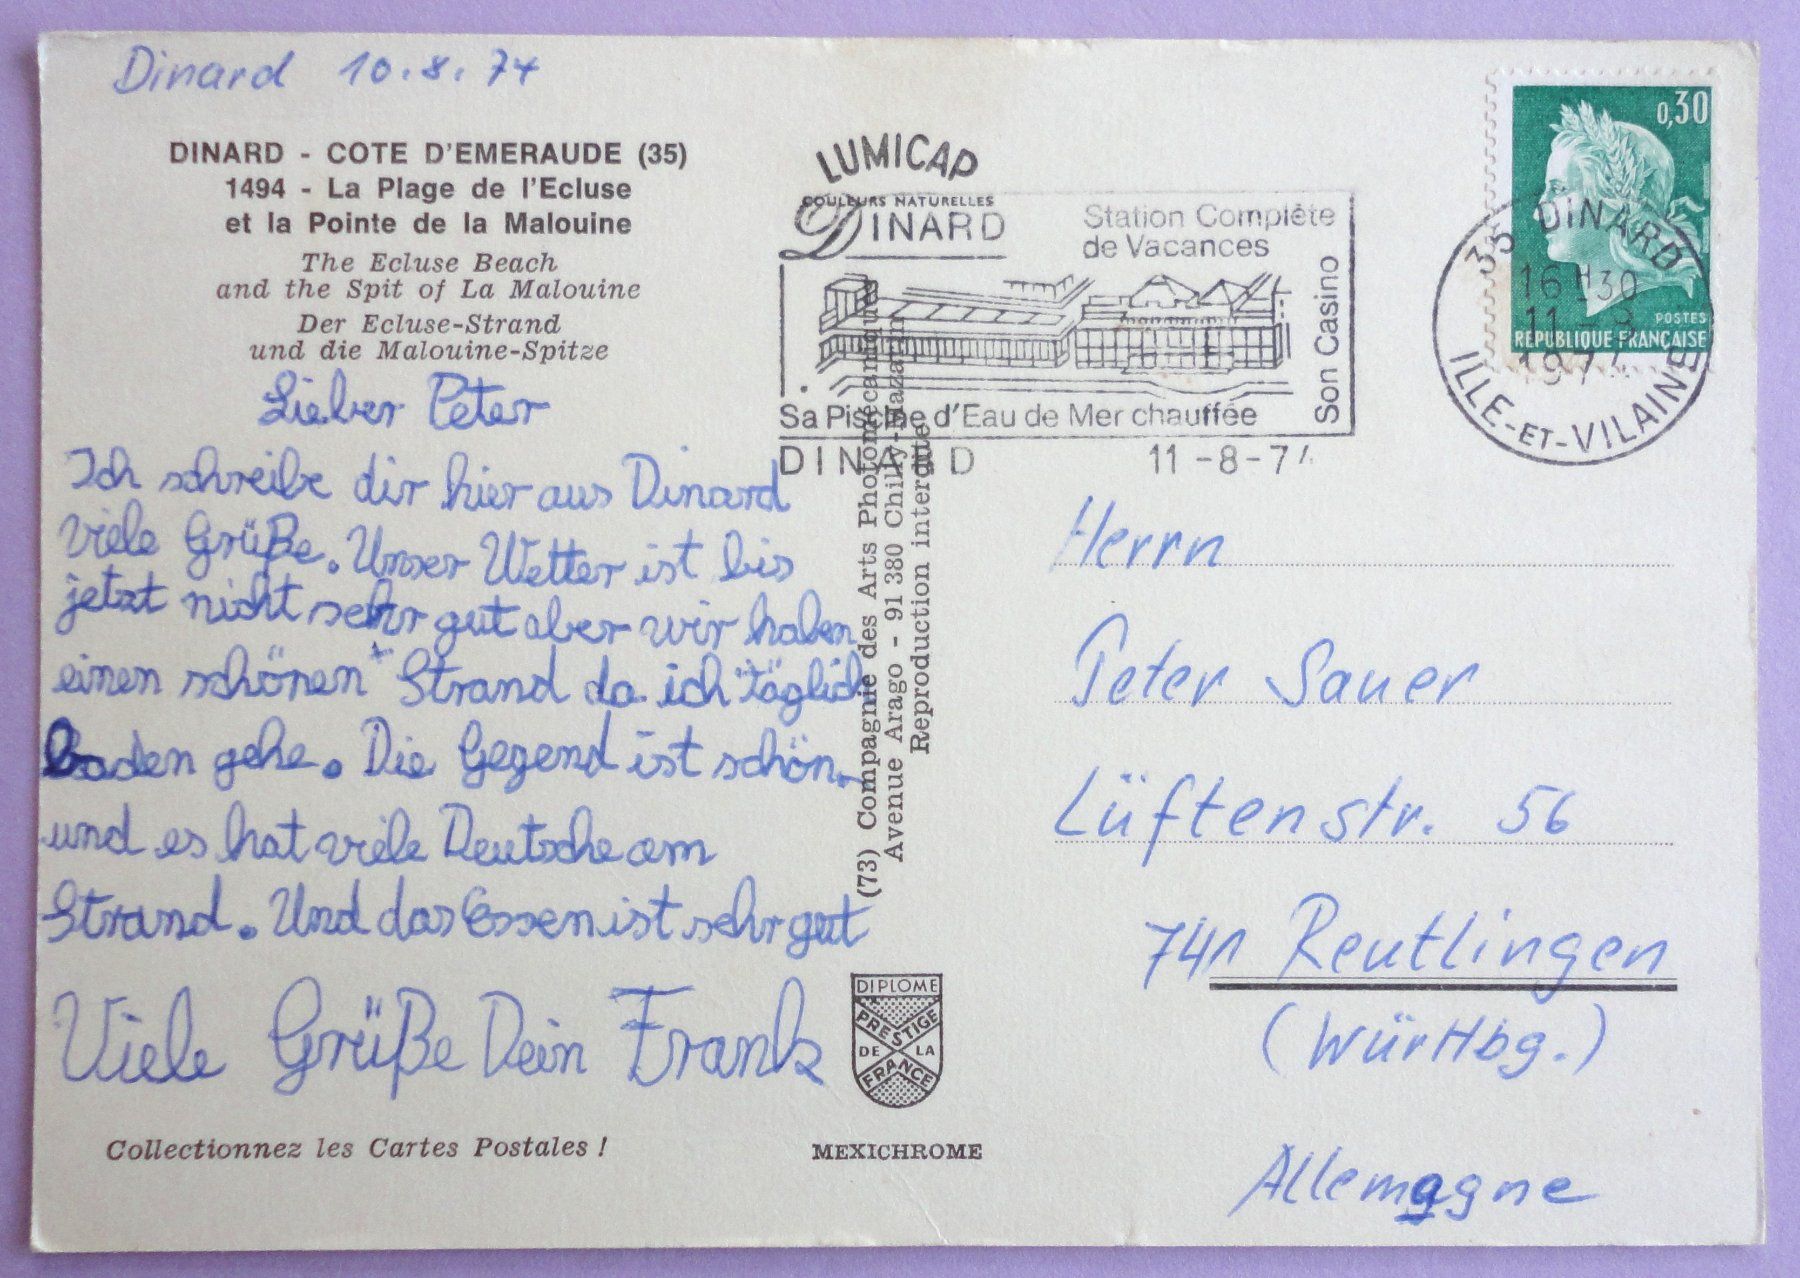 Dinard 10.8.74
DINARD - COTE D'EMERAUDE (35)
1494 - La Plage de l'Ecluse
et la Pointe de la Malouine
The Ecluse Beach
and the Spit of La Malouine
Der Ecluse-Strand
und die Malouine-Spitze
Lieber Peter
Ich schreibe dir hier aus Dinard
viele Grüße. Unser Wetter ist bis
jetzt nicht sehr gut aber wir haben
einen schönen Strand da ich täglich
baden gehe. Die Gegend ist schön.
und es hat viele Deutsche am
Strand. Und das Essen ist sehr gut
Viele Grüße Dein Frank
Collectionnez les Cartes Postales !
LUMICAP
COULEURS NATURELLES
DINARD
Station Complète
de Vacances
Son Casino
Sa Piscine d'Eau de Mer chauffée
DINARD 11-8-74
(73) Compagnie des Arts Photomécaniques
Avenue Arago - 91380 Chilly-Mazarin
Reproduction interdite
DIPLOME
PRESTIGE
DE LA
FRANCE
MEXICHROME
0,30
POSTES
RÉPUBLIQUE FRANÇAISE
35 DINARD
16H30
11-8
1974
ILLE-ET-VILAINE
Herrn
Peter Sauer
Lüftenstr. 56
741 Reutlingen
(Württbg.)
Allemagne